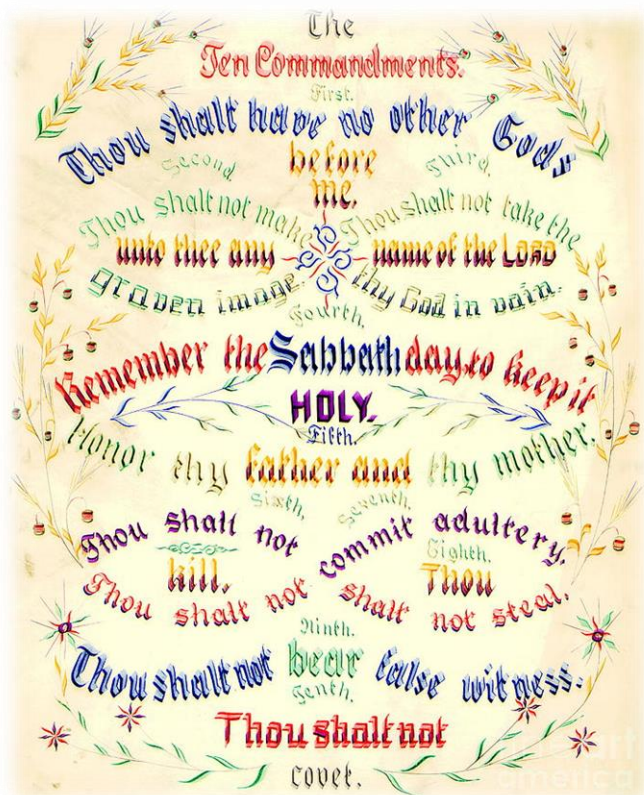 The
Ten Commandments.
First.
Thou shalt have no other Gods
before
me.
Second.
Thou shalt not make
unto thee any
graven image.
Third.
Thou shalt not take the
name of the LORD
thy God in vain.
Fourth.
Remember the Sabbath day to keep it
HOLY.
Fifth.
Honor thy father and thy mother.
Sixth.
Thou shalt not
kill.
Seventh.
Thou shalt not commit adultery.
Eighth.
Thou
shalt not steal.
Ninth.
Thou shalt not bear false witness.
Tenth.
Thou shalt not
covet.
art
america